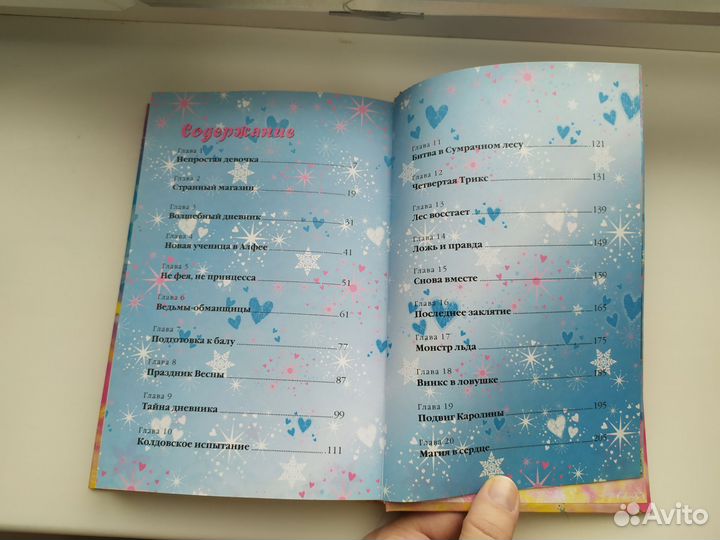 Содержание
Глава 1
Непростая девочка 7
Глава 2
Странный магазин 19
Глава 3
Волшебный дневник 31
Глава 4
Новая ученица в Алфее 41
Глава 5
Не фея, не принцесса 51
Глава 6
Ведьмы-обманщицы 61
Глава 7
Подготовка к балу 77
Глава 8
Праздник Весны 87
Глава 9
Тайна дневника 99
Глава 10
Колдовское испытание 111
Глава 11
Битва в Сумрачном лесу 121
Глава 12
Четвертая Трикс 131
Глава 13
Лес восстает 139
Глава 14
Ложь и правда 149
Глава 15
Снова вместе 159
Глава 16
Последнее заклятие 165
Глава 17
Монстр льда 175
Глава 18
Винкс в ловушке
Глава 19
Подвиг Каролины 195
Глава 20
Магия в сердце 205
Avito